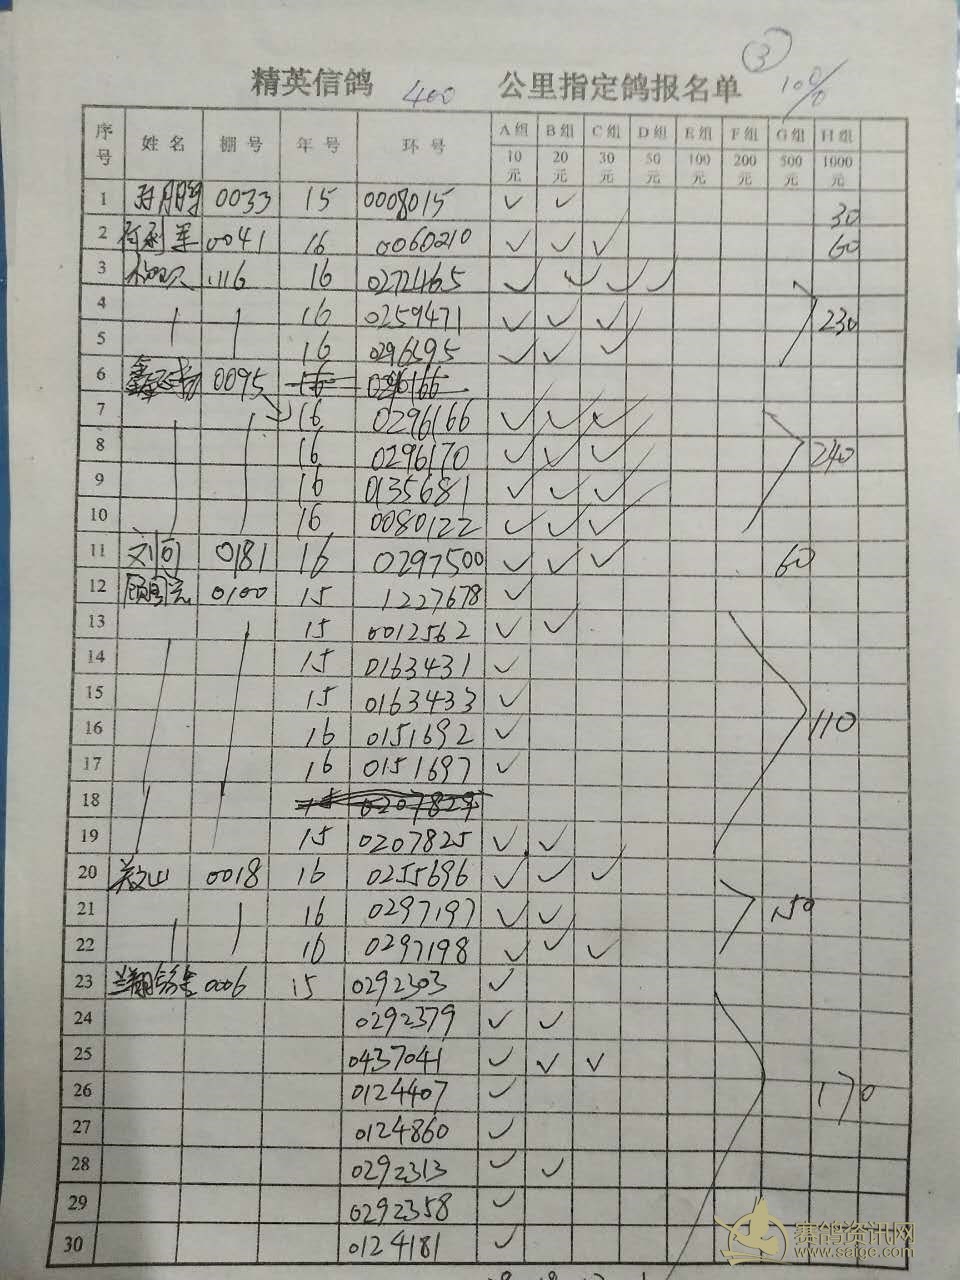 ③
精英信鸽 400 公里指定鸽报名单 10%
序号 姓名 棚号 年号 环号 A组 B组 C组 D组 E组 F组 G组 H组
10元 20元 30元 50元 100元 200元 500元 1000元
1 0033 15 0008015 ✓ ✓ 30
2 0041 16 0060210 ✓ ✓ ✓ 60
3 116 16 0272465 ✓ ✓ ✓ ✓
4 16 0259471 ✓ ✓ ✓ 230
5 16 0296595 ✓ ✓ ✓
6 0095 16 0296166
7 16 0296166 ✓ ✓ ✓
8 16 0296170 ✓ ✓ ✓ 240
9 16 0135681 ✓ ✓ ✓
10 16 0080122 ✓ ✓ ✓
11 刘向 0181 16 0297500 ✓ ✓ ✓ 60
12 0100 15 1227678 ✓
13 15 0012562 ✓ ✓
14 15 0163431 ✓
15 15 0163433 ✓
16 16 0151692 ✓ 110
17 16 0151697 ✓
18 15 0207829
19 15 0207825 ✓ ✓
20 0018 16 0255696 ✓ ✓ ✓
21 16 0297197 ✓ ✓ 150
22 16 0297198 ✓ ✓ ✓
23 0006 15 0292303 ✓
24 0292379 ✓ ✓
25 0437041 ✓ ✓ ✓
26 0124407 ✓ 170
27 0124860 ✓
28 0292313 ✓ ✓
29 0292358 ✓
30 0124181 ✓
赛鸽资讯网
www.saige.com